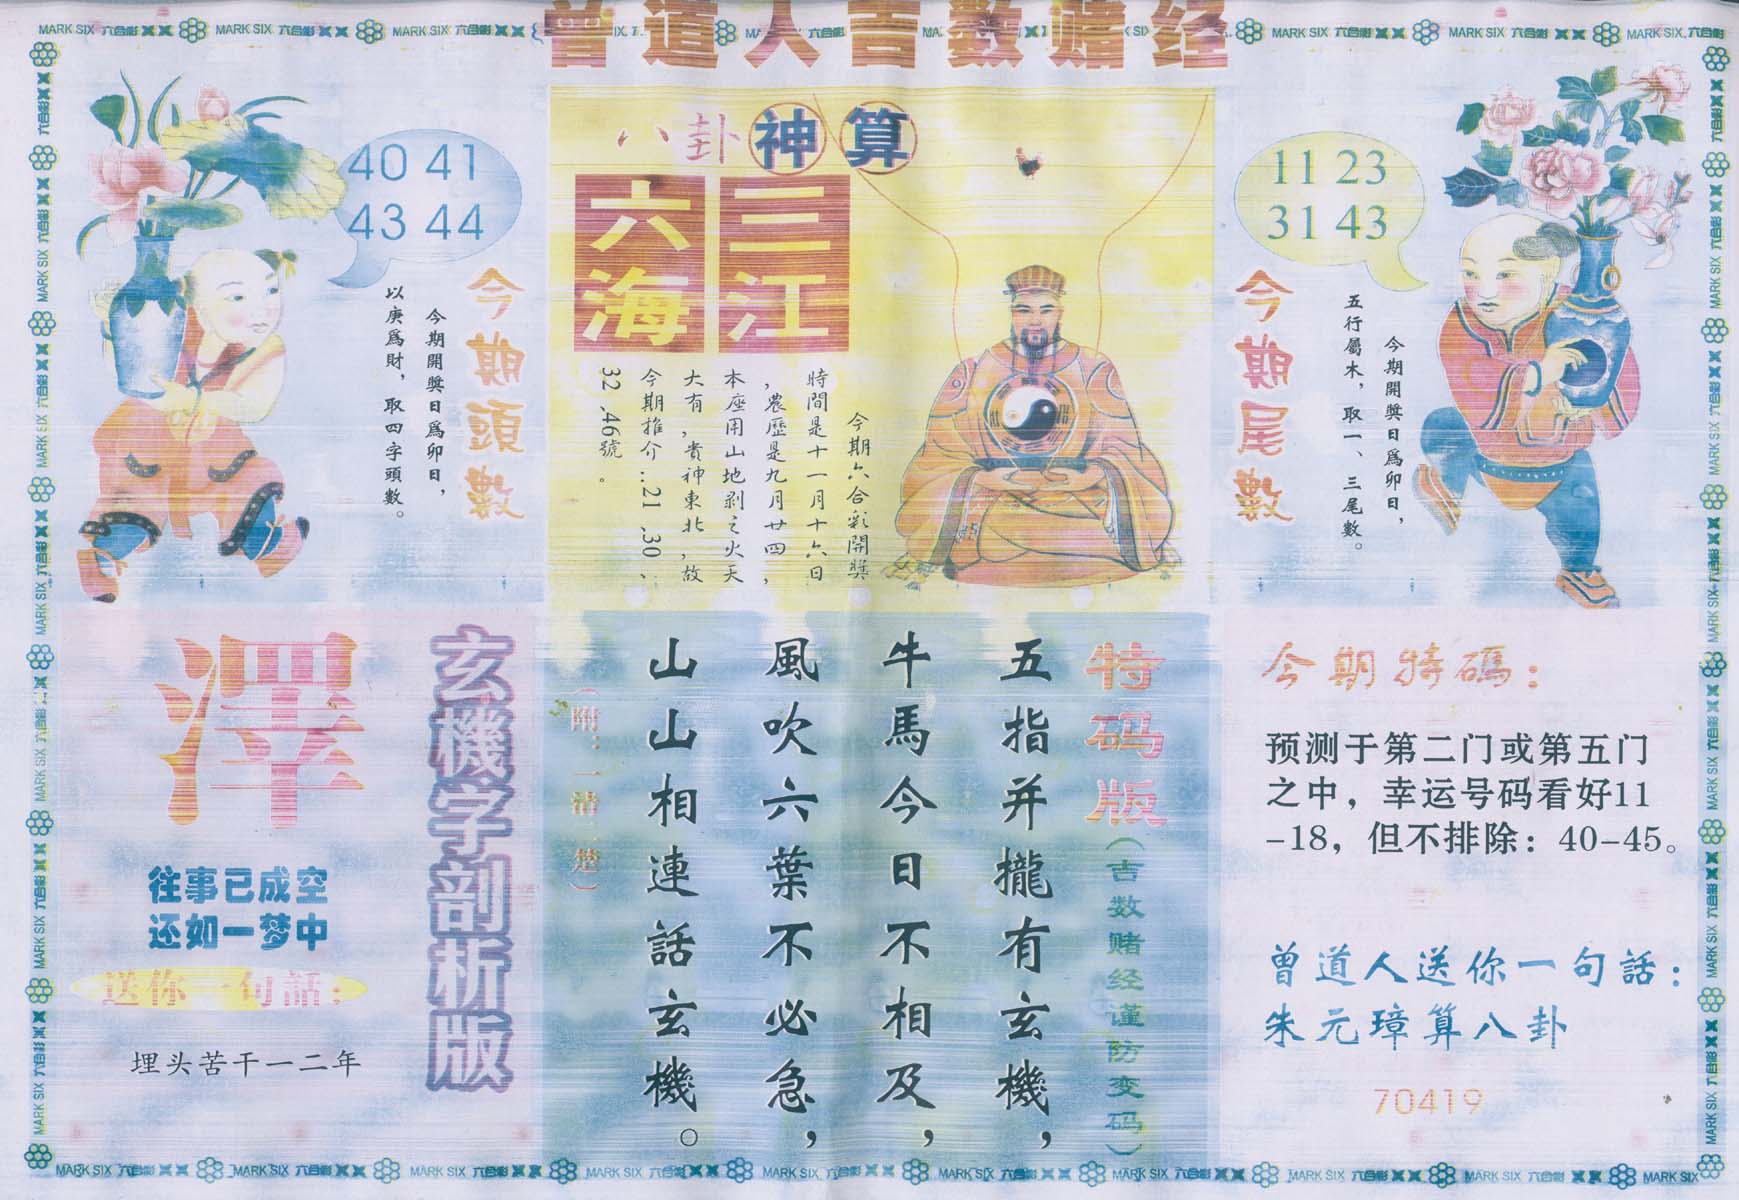 曾道人吉数赌经
MARK SIX 六合彩
40 41
43 44
今期頭數
今期開獎日爲卯日，
以庚爲財，取四字頭數。
八卦神算
三江
六海
今期六合彩開獎
時間是十一月十六日
，農歷是九月廿四，
本座用山地剥之火天
大有，貴神東北，故
今期推介：21、30、
32、46號。
11 23
31 43
今期尾數
今期開獎日爲卯日，
五行屬木，取一、三尾數。
玄機字剖析版
澤
往事已成空
还如一梦中
送你一句話：
埋头苦干一二年
特码版
（吉数赌经谨防变码）
五指并攏有玄機，
牛馬今日不相及，
風吹六葉不必急，
山山相連話玄機。
（附：一清二楚）
今期特碼：
预测于第二门或第五门
之中，幸运号码看好11
-18，但不排除：40-45。
曾道人送你一句話：
朱元璋算八卦
70419